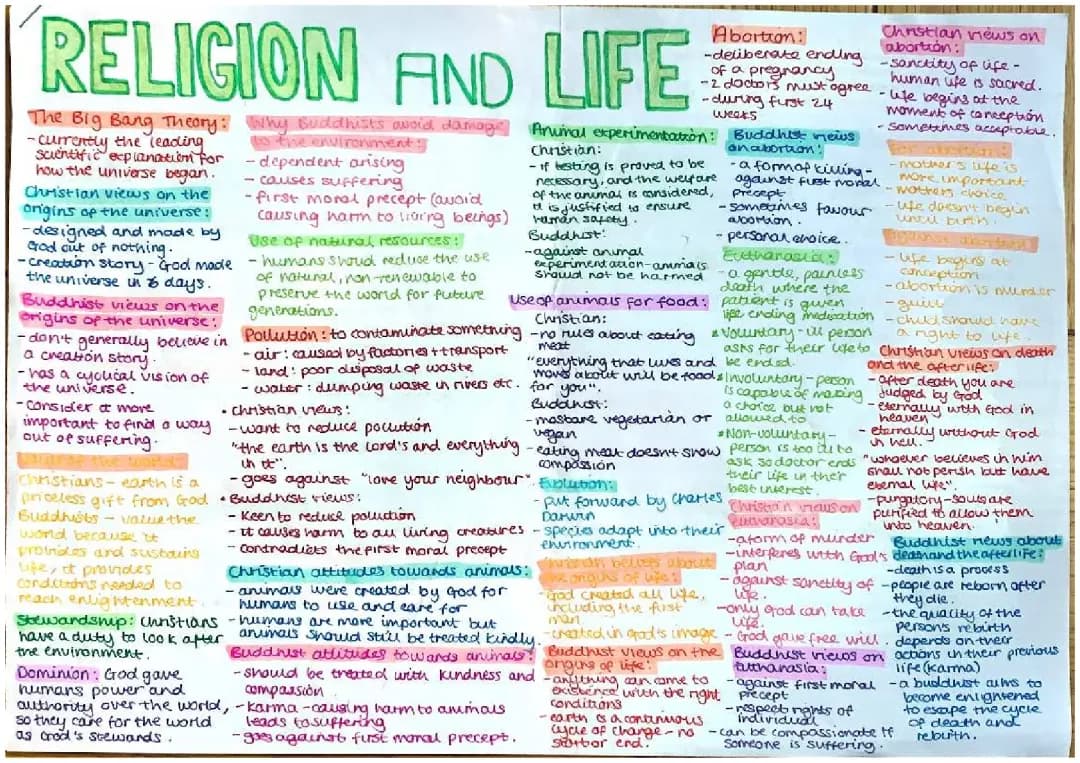 RELIGION AND LIFE
The Big Bang Theory:
- currently the leading
scientific explanation for
how the universe began.
Christian views on the
origins of the universe:
- designed and made by
God out of nothing.
- creation story - God made
the universe in 6 days.
Buddhist views on the
origins of the universe:
- don't generally believe in
a creation story.
- has a cyclical vision of
the universe.
- consider it more
important to find a way
out of suffering.
of the world:
Christians - earth is a
priceless gift from God
Buddhists - value the
world because it
provides and sustains
life, it provides
conditions needed to
reach enlightenment.
Stewardship: Christians
have a duty to look after
the environment.
Dominion: God gave
humans power and
authority over the world,
so they care for the world
as God's stewards.
Why Buddhists avoid damage
to the environment:
- dependent arising
- causes suffering
- first moral precept (avoid
causing harm to living beings)
Use of natural resources:
- humans should reduce the use
of natural, non-renewable to
preserve the world for future
generations.
Pollution: to contaminate something
- air: caused by factories + transport
- land: poor disposal of waste
- water: dumping waste in rivers etc.
• Christian views:
- want to reduce pollution
- "the earth is the Lord's and everything
in it".
- goes against "love your neighbour".
• Buddhist views:
- keen to reduce pollution
- it causes harm to all living creatures
- contradicts the first moral precept
Christian attitudes towards animals:
- animals were created by God for
humans to use and care for
- humans are more important but
animals should still be treated kindly.
Buddhist attitudes towards animals:
- should be treated with kindness and
compassion
- karma - causing harm to animals
leads to suffering
- goes against first moral precept.
Animal experimentation:
Christian:
- if testing is proved to be
necessary, and the welfare
of the animal is considered,
it is justified to ensure
human safety.
Buddhist:
- against animal
experimentation - animals
should not be harmed
Use of animals for food:
Christian:
- no rules about eating
meat
"everything that lives and
moves about will be food
for you".
Buddhist:
- most are vegetarian or
vegan
- eating meat doesn't show
compassion
Evolution:
- put forward by Charles
Darwin
- species adapt into their
environment.
Christian beliefs about
the origins of life:
- God created all life,
including the first
man
- created in god's image
Buddhist views on the
origins of life:
- anything can come to
existence with the right
conditions
- earth is a continuous
cycle of change - no
start or end.
Abortion:
- deliberate ending
of a pregnancy
- 2 doctors must agree
- during first 24
weeks
Buddhist views
on abortion:
- a form of killing -
against first moral
precept
- sometimes favour
abortion.
- personal choice.
Euthanasia:
- a gentle, painless
death where the
patient is given
life ending medication
* Voluntary - ill person
asks for their life to
be ended.
* Involuntary - person
is capable of making
a choice but not
allowed to
* Non-voluntary -
person is too ill to
ask so doctor ends
their life in their
best interest.
Christian views on
euthanasia:
- a form of murder
- interferes with God's
plan
- against sanctity of
life.
- only God can take
life.
- God gave free will.
Buddhist views on
euthanasia:
- against first moral
precept
- respect rights of
individual
- can be compassionate if
someone is suffering.
Christian views on
abortion:
- sanctity of life -
human life is sacred.
- life begins at the
moment of conception
- sometimes acceptable.
For abortion:
- mother's life is
more important
- mothers choice
- life doesn't begin
until birth
Against abortion:
- life begins at
conception
- abortion is murder
- guilt
- child should have
a right to life.
Christian views on death
and the afterlife:
- after death you are
judged by God
- eternally with God in
heaven
- eternally without God
in hell.
"whoever believes in him
shall not perish but have
eternal life".
- purgatory - souls are
purified to allow them
into heaven.
Buddhist views about
death and the afterlife:
- death is a process
- people are reborn after
they die.
- the quality of the
persons rebirth
depends on their
actions in their previous
life (karma)
- a buddhist aims to
become enlightened
to escape the cycle
of death and
rebirth.